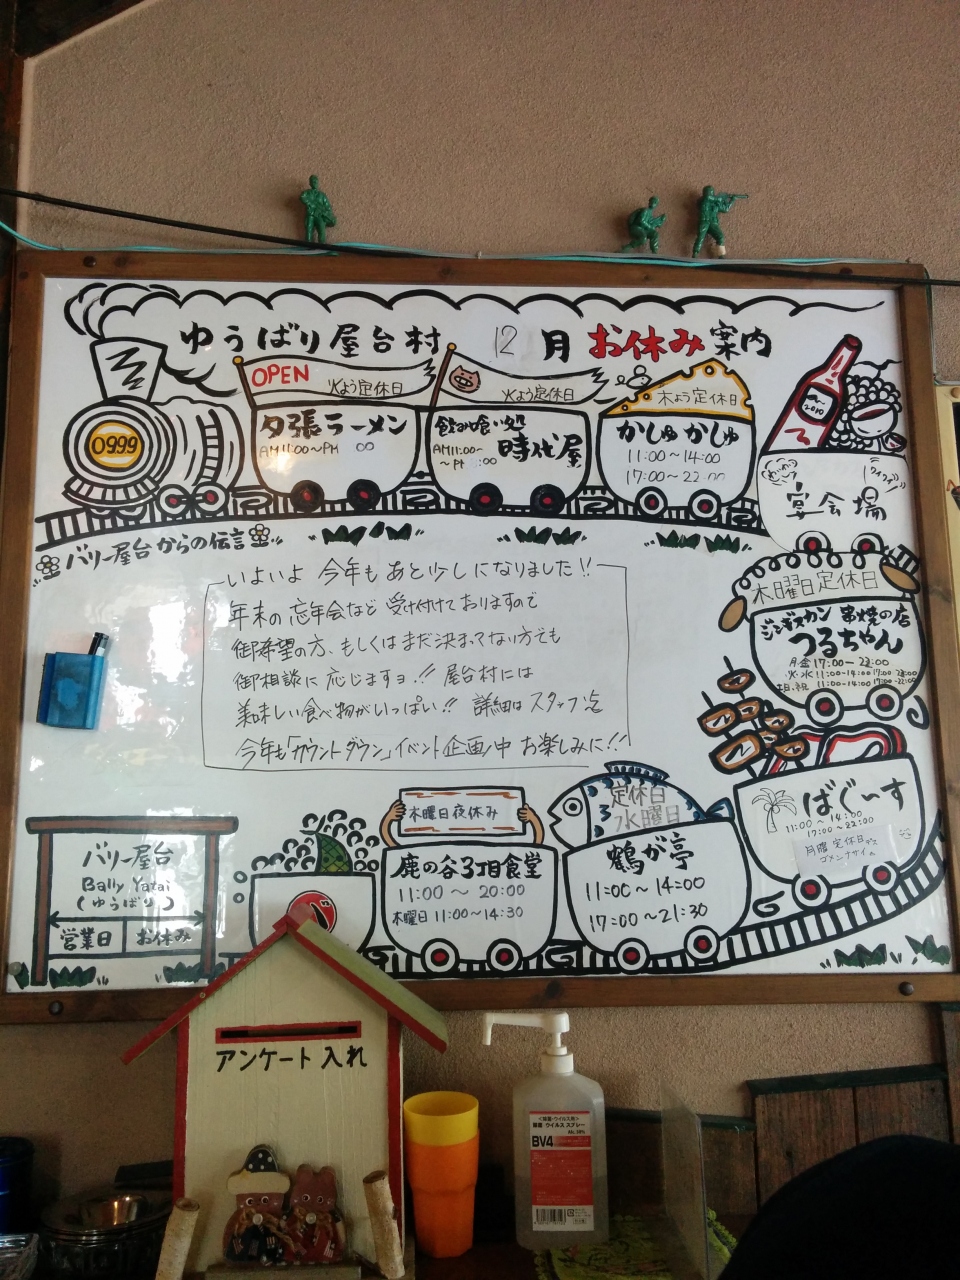 ゆうばり屋台村 12月 お休み案内
OPEN
火よう定休日
夕張ラーメン
AM11:00~PM ∞
火よう定休日
飲み喰い処
時代屋
AM11:00~
木よう定休日
かしゅかしゅ
11:00~14:00
17:00~22:00
2010
宴会場
0999
バリー屋台からの伝言
いよいよ 今年も あと少しになりました!!
年末の 忘年会など 受け付けておりますので
御希望の方、もしくは まだ決まってない方でも
御相談に 応じますョ!! 屋台村には
美味しい食べ物がいっぱい!! 詳細は スタッフ迄
今年も「カウントダウン」イベント企画中 お楽しみに!!
木曜日定休日
ジンギスカン 串焼の店
つるちゃん
月・金 17:00~22:00
火・水 11:00~14:00 17:00~22:00
土・日・祝 11:00~14:00 17:00~22:00
ばぐぅす
11:00~14:00
17:00~22:00
月曜定休日デス
ゴメンナサイ
定休日
水曜日
鶴が亭
11:00~14:00
17:00~21:30
木曜日夜休み
鹿の谷3丁目食堂
11:00~20:00
木曜日 11:00~14:30
バリー屋台
Bally Yatai
(ゆうばり)
営業日 お休み
アンケート入れ
<除菌・ウイルス用>
除菌 ウイルス スプレー
BV4